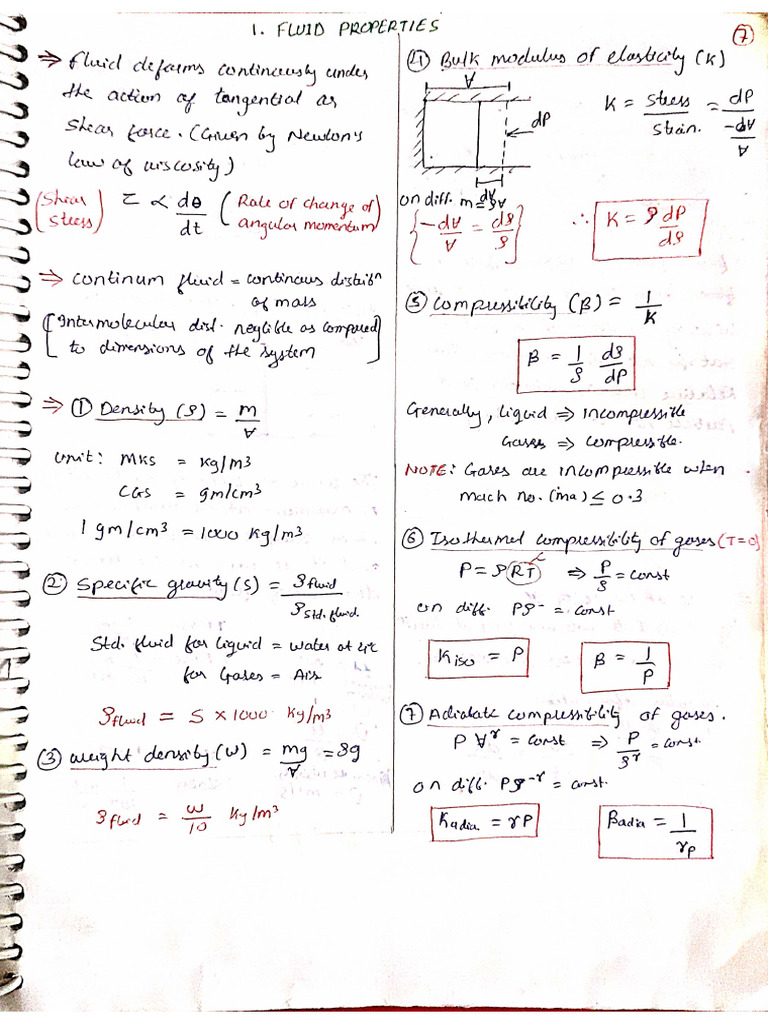 1. FLUID PROPERTIES
7
⇒ Fluid deforms continuously under
the action of tangential as
shear force. (Given by Newton's
law of viscosity)
(Shear stress) τ ∝ dθ/dt (Rate of change of angular momentum)
⇒ continum fluid = continous distribⁿ
of mass
[Intermolecular dist. neglible as compared
to dimensions of the system]
⇒ ① Density (ρ) = m/∀
unit: MKS = kg/m3
CGS = gm/cm3
1 gm/cm3 = 1000 kg/m3
② Specific gravity (S) = ρfluid/ρStd. fluid.
Std. fluid for Liquid = water at 4°C
for Gases = Air
ρfluid = S × 1000 kg/m3
③ weight density (w) = mg/∀ = ρg
ρfluid = w/10 kg/m3
④ Bulk modulus of elasticity (K)
∀
dP
d∀
K = stress/strain. = dP/(-d∀/∀)
on diff. m = ρ∀
{-d∀/∀ = dρ/ρ}
∴ K = ρ dP/dρ
⑤ compressibility (β) = 1/K
β = 1/ρ dρ/dP
Generally, Liquid ⇒ incompressible
Gases ⇒ compressible.
NOTE: Gases are incompressible when
mach no. (ma) ≤ 0.3
⑥ Isothermel compressibility of gases (T=0)
P = ρRT c ⇒ P/ρ = const
on diff. Pρ⁻ = const
Kiso = P
β = 1/P
⑦ Adiabatc compressibility of gases.
P ∀^r = const ⇒ P/ρ^r = const.
on diff. Pρ^-r = const.
Kadia. = rP
βadia = 1/rP